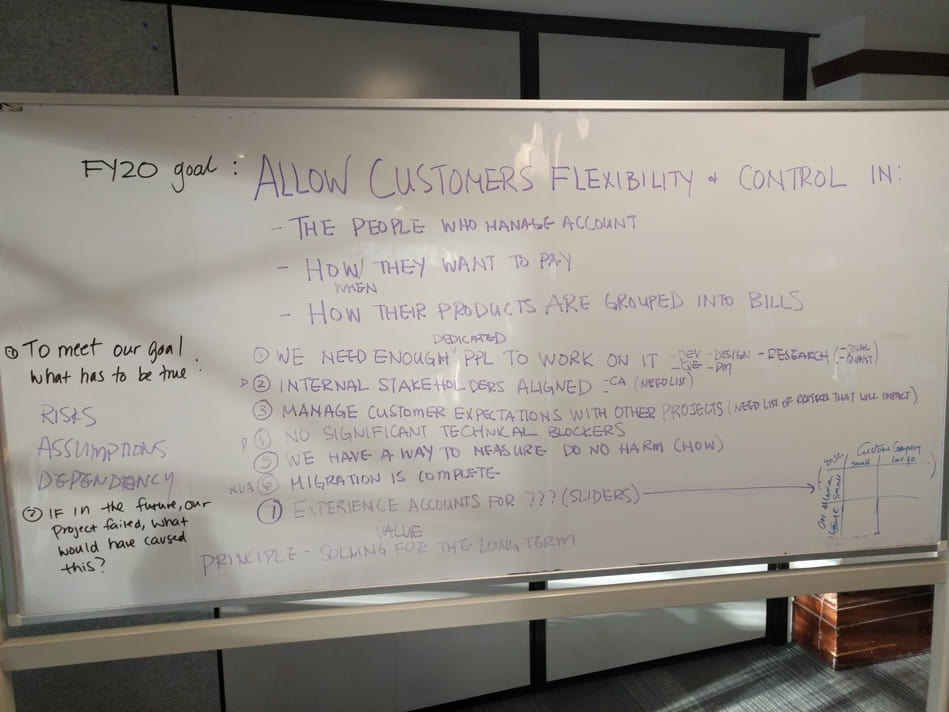 FY20 goal: ALLOW CUSTOMERS FLEXIBILITY + CONTROL IN:
- THE PEOPLE WHO MANAGE ACCOUNT
- HOW/ THEY WANT TO PAY
WHEN
- HOW THEIR PRODUCTS ARE GROUPED INTO BILLS
① To meet our goal
what has to be true:
RISKS
ASSUMPTIONS
DEPENDENCY
② IF in the future, our
project failed, what
would have caused
this?
DEDICATED
① WE NEED ENOUGH PPL TO WORK ON IT - DEV - DESIGN - RESEARCH (- QUAL
- QE - DM - QUANT)
D ② INTERNAL STAKEHOLDERS ALIGNED - CA (NEED LIST)
③ MANAGE CUSTOMER EXPECTATIONS WITH OTHER PROJECTS (NEED LIST OF PROJECTS THAT WILL IMPACT)
NO SIGNIFICANT TECHNICAL BLOCKERS
⑤ WE HAVE A WAY TO MEASURE DO NO HARM (HOW)
⑥ MIGRATION IS COMPLETE
⑦ EXPERIENCE ACCOUNTS FOR ??? (SLIDERS)
VALUE
PRINCIPLE - SOLVING FOR THE LONG TERM
Company
small
small